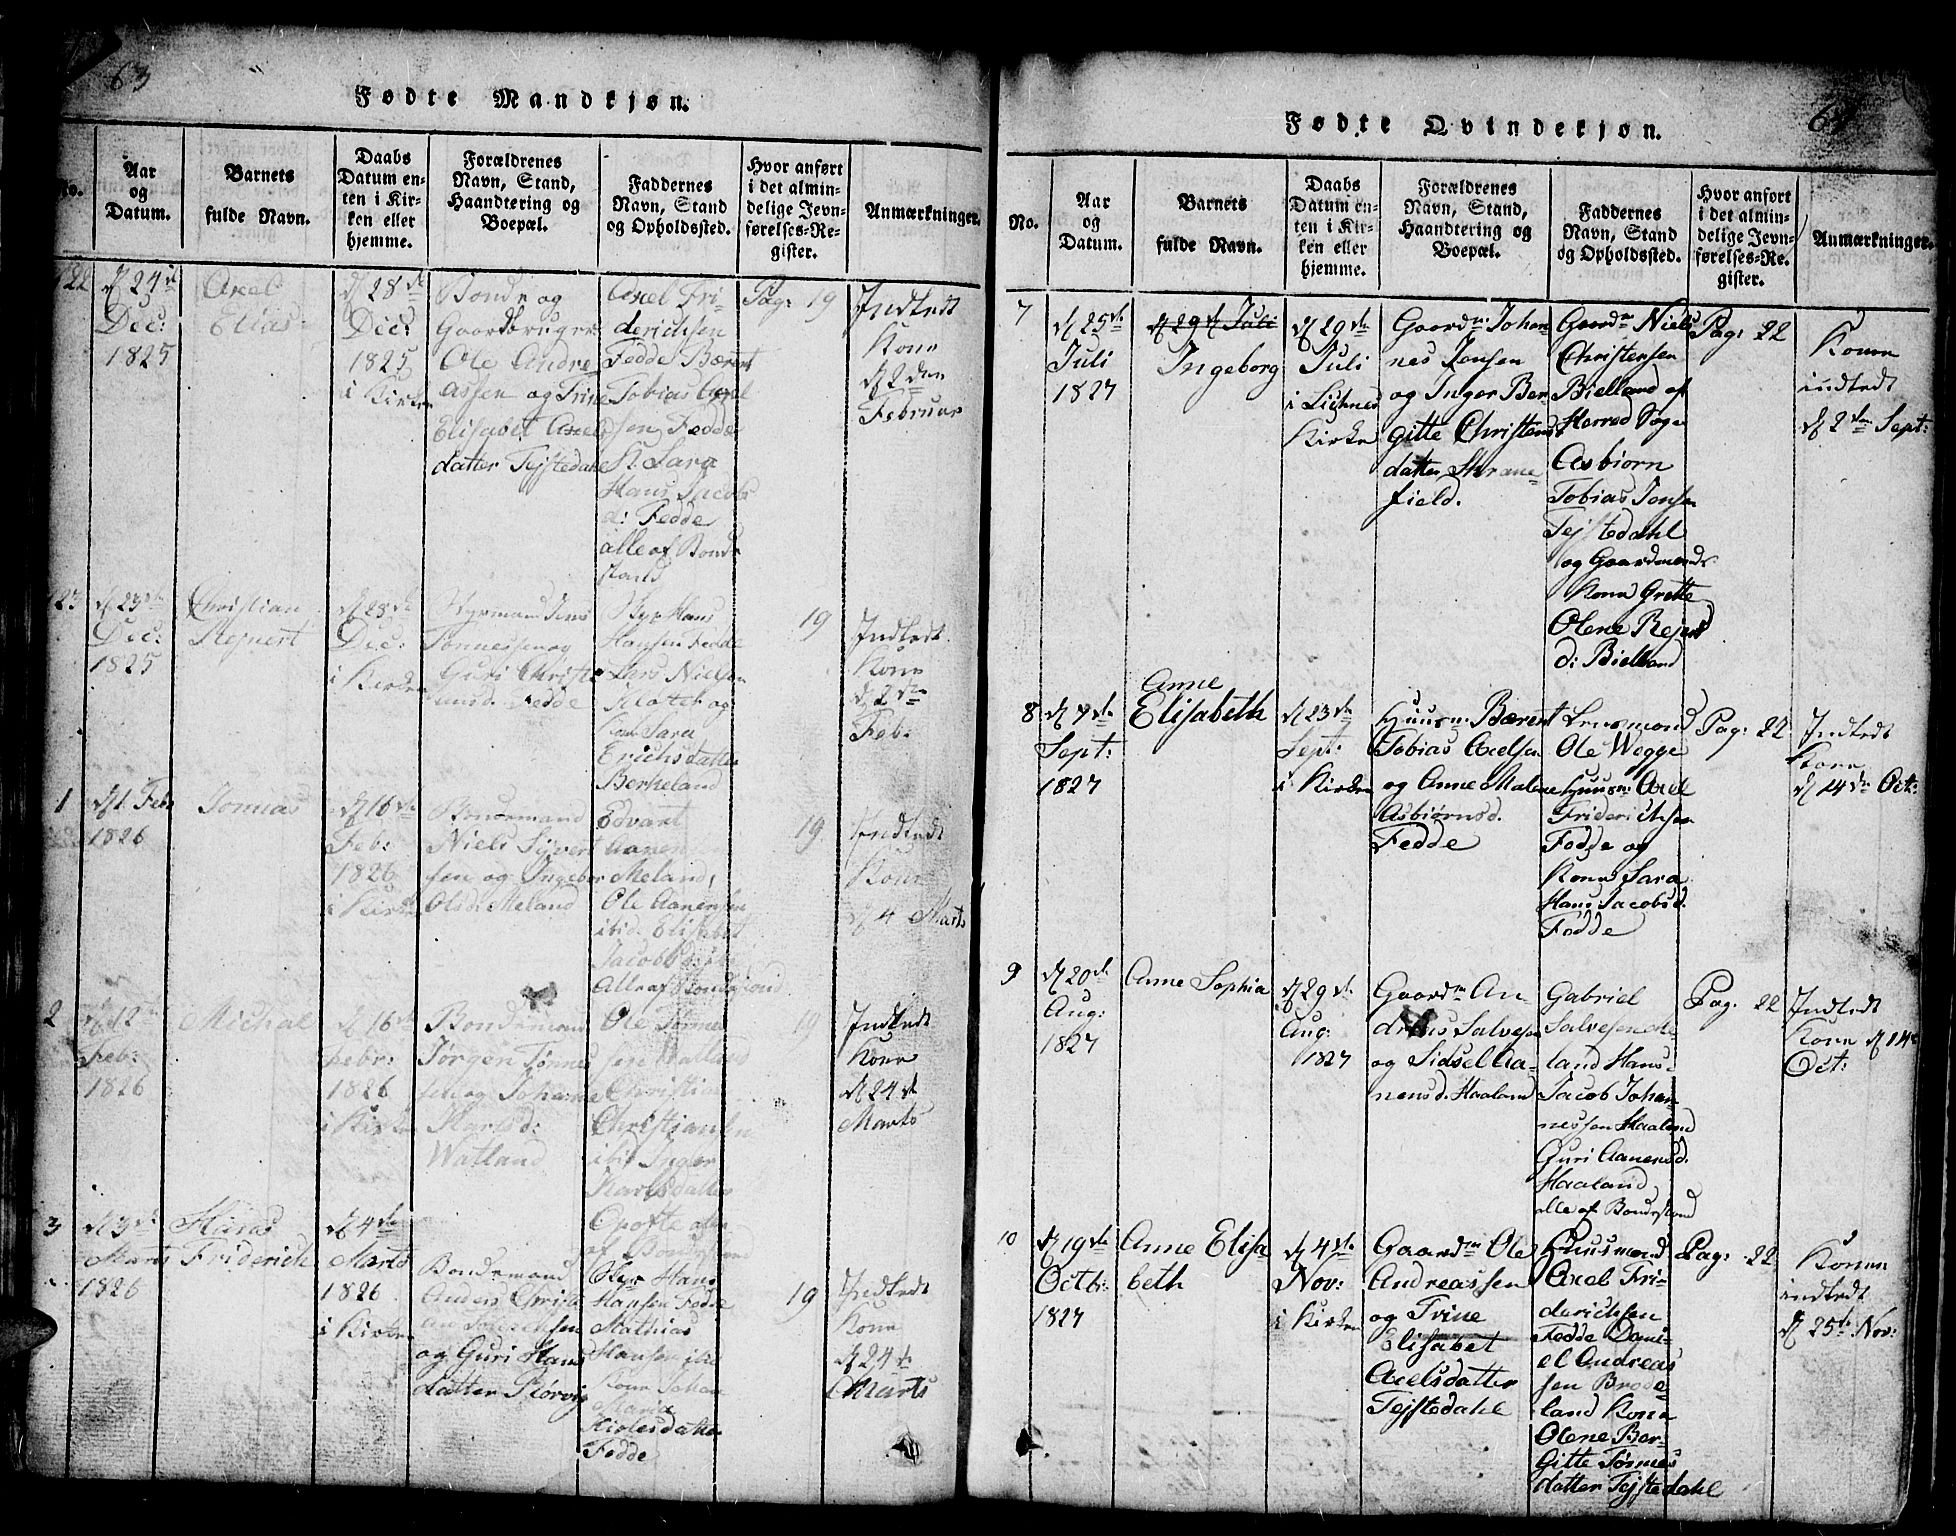 63
Fødte Mandkjøn.
No.
Aar
og
Datum.
Barnets
fulde Navn.
Daabs
Datum en-
ten i Kir-
ken eller
hjemme.
Forældrenes
Navn, Stand,
Haandtering og
Boepæl.
Faddernes
Navn, Stand
og Opholdssted.
Hvor anført
i det almin-
delige Jevn-
førelses-Re-
gister.
Anmærkninger.
22
d 24de
Dec:
1825
Axel
Elias
d 28de
Dec:
1825
i Kirken
Bonde og
Gaardbruger
Ole Andre
assen og Trine
Elisabet Axels
datter Tejstedahl
Axel Fri-
derichsen
Fedde Bærent
Tobias Axel
sen Fedde
K. Sara
Hans Jacobs
d: Fedde
alle af Bonde
stand
Pag: 19
Indledt
Kone
d 2den
Februar
23
d 23de
Dec:
1825
Christian
Rejnert
d 28de
Dec:
i Kirken
Jens
Tønnessen og
Guri Christi
ansd. Fedde
Hans
Hansen Fedde
Lars Nielsen
og
Sara
Erichsdatter
Berkeland
19
Indledt
Kone
d 2de
Feb:
1
d 1. Feb:
1826
Tomas
d 16de
Feb:
1826
i Kirken
Bondemand
Niels Sivert
sen og Ingebor
Olsd: Meland
Edvart
Aanen
Meland,
Ole Aanensen
ibid. Elisabet
Jacobsd:
Alle af Bondestand
19
Indledt
Kone
d 4 Marts
2
d 12te
Feb:
1826
Michal
d 16de
Febr:
1826
i Kirken
Bondemand
Jørgen Tønnes
sen og Johanne
Karlsd:
Watland
Ole Tønnes
sen Watland
Christian
Christiansen
ibid Inger
Karlsdatter
af Bondestand
19
Indledt
Kone
d 24de
Marts
3
d 3de
Marts
1826
Hans
Friderich
d 4de
Marts
1826
i Kirken
Bondemand
Anders Christi
an
og Guri Hans
datter Rørvig
Hans
Hansen Fedde
Mathias
Hansen ibd
Kone Johan
Maria
Nielsdatter
Fedde
19
Indledt
Kone
d 24de
Marts
64
Fødte Qvindekjøn.
No.
Aar
og
Datum.
Barnets
fulde Navn.
Daabs
Datum en-
ten i Kir-
ken eller
hjemme.
Forældrenes
Navn, Stand,
Haandtering og
Boepæl.
Faddernes
Navn, Stand
og Opholdssted.
Hvor anført
i det almin-
delige Jevn-
førelses-Re-
gister.
Anmærkninger.
7
d 25de
Juli
1827
d 29de Juli
Ingeborg
d 29de
Juli
i Lichnes
Kirke
Gaardm: Johan
nes Jensen
og Inger Ber
gitte Christens
datter Strane-
field.
Gaardm Niels
Christensen
Bielland af
Herred Sogn
Asbiørn
Tobias Jensen
Tejstedahl
og Gaardmands
Kone Grette
Olene Rejers
d: Bielland
Pag: 22
Konen
indledt
d 2den Sept:
8
d 7de
Sept:
1827
Anne
Elisabeth
d 23de
Sept:
i Kirken
Huusm: Bærent
Tobias Axelsen
og Anne Malene
Asbiørnsd.
Fedde
Lensmand
Ole Wegge
Huusm: Axel
Friderichsen
Fedde og
Kone Sara
Hans Jacobsd.
Fedde
Pag: 22
Indledt
Kone
d 14de Oct:
9
d 20de
Aug:
1827
Anne Sophia
d 29de
Aug:
1827
Gaardm An
dreas Salvesen
og Sidsel Aa-
nensd. Haaland
Gabriel
Salvesen
land Hans
Jacob Johan-
nessen Haaland
Guri Aanensd.
Haaland
alle af Bondestand
Pag: 22
Indledt
Kone d 14de
Oct:
10
d 19de
Octb:
1827
Anne Elisa
beth
d 4de
Nov:
i Kirken
Gaardm Ole
Andreassen
og Trine
Elisabet
Axelsdatter
Tejstedahl
Huusmand
Axel Fri-
derichsen
Fedde Dani-
el Andreas
sen Brode-
land Kone
Olene Ber-
gitte Tønnes
datter Tejstedahl
Pag: 22
Konen
indledt
d 25de Nov: